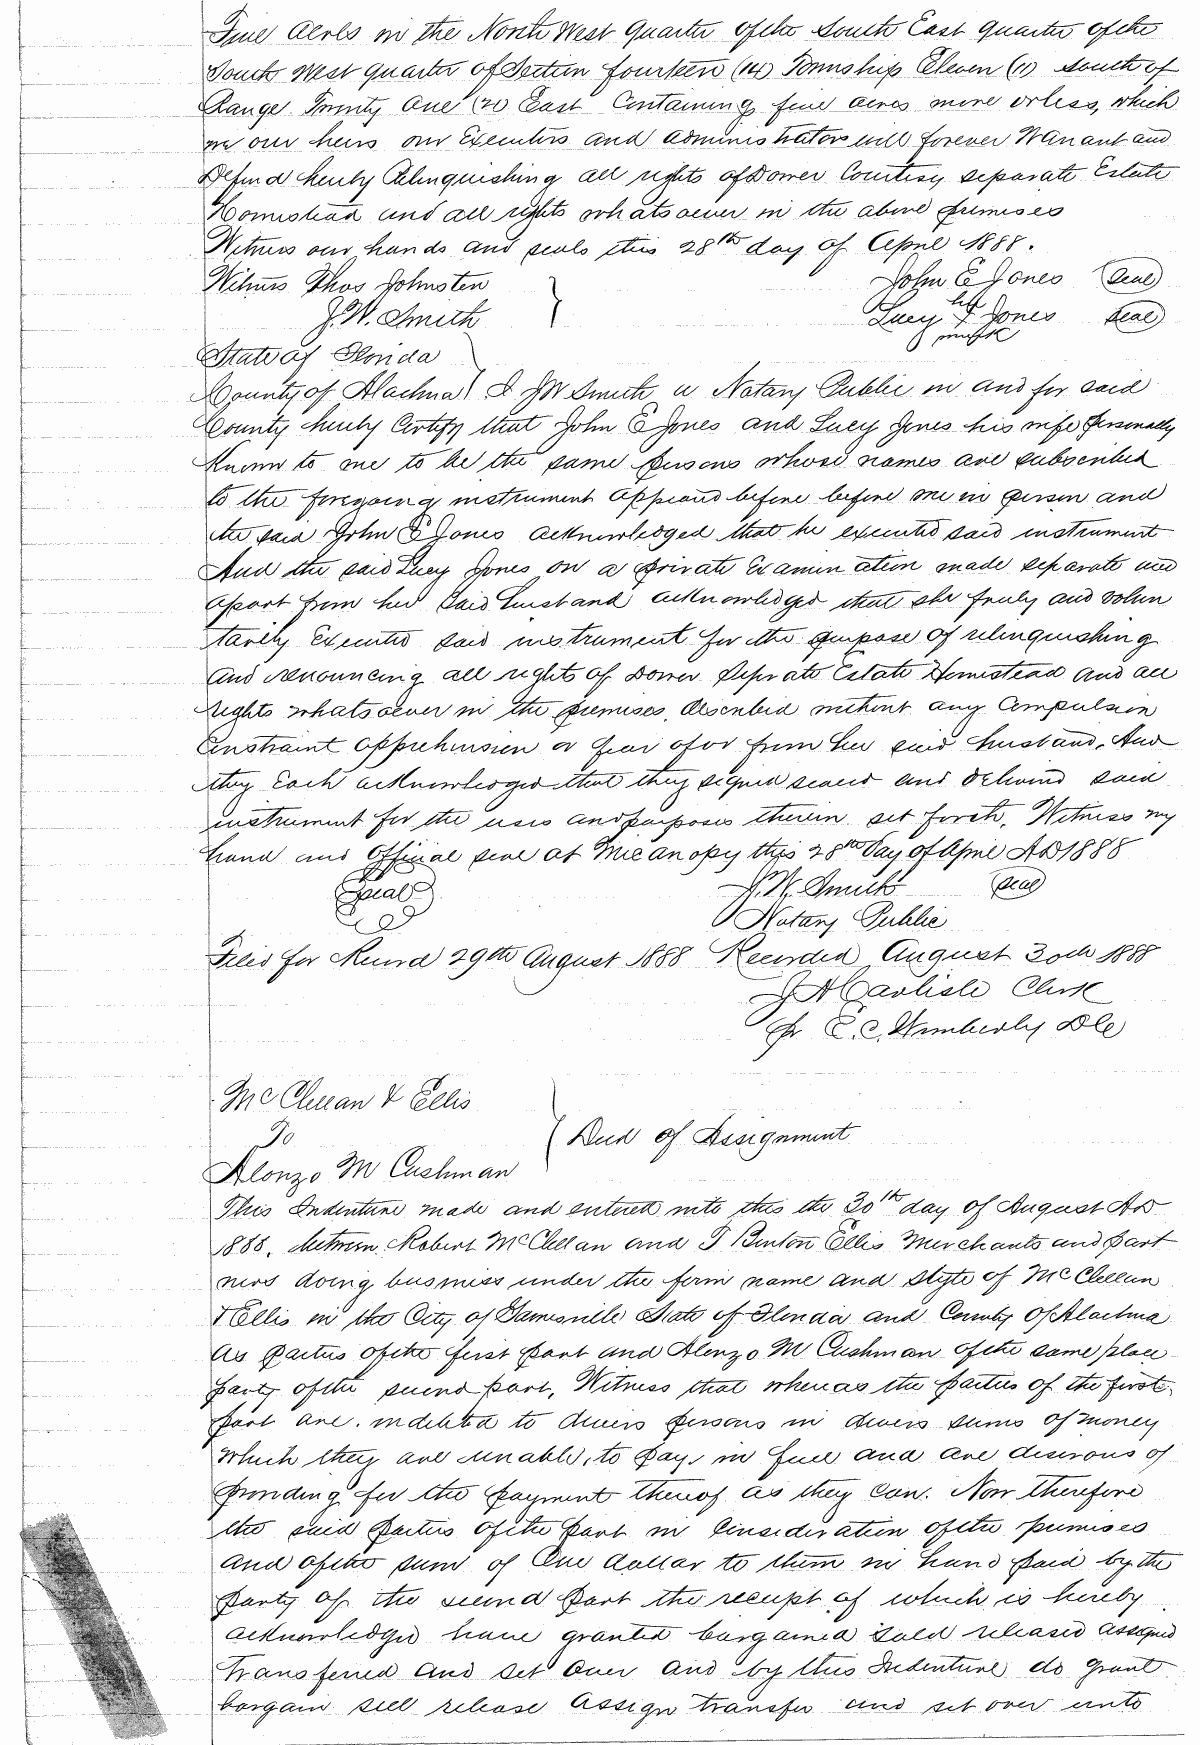 Five acres in the North West quarter of the South East quarter of the
South West quarter of Section fourteen (14) Township Eleven (11) South of
Range Twenty One (21) East Containing five acres more or less, which
we our heirs our Executors and administrators will forever Warrant and
Defend hereby Relinquishing all rights of Dower Courtesy separate Estate
Homestead and all rights whatsoever in the above premises
Witness our hands and seals this 28th day of April 1888.
Witness Thos Johnsten } John E Jones (seal)
J.W. Smith Lucy her X mark Jones (seal)
State of Florida
County of Alachua } I JW Smith a Notary Public in and for said
County hereby Certify that John E Jones and Lucy Jones his wife personally
Known to me to be the same persons whose names are subscribed
to the foregoing instrument appeard before before me in person and
the said John E Jones acknowledged that he executed said instrument
And the said Lucy Jones on a private Examination made separate and
apart from her said husband acknowledged that she freely and volun
tarily Executed said instrument for the purpose of relinquishing
and renouncing all rights of Dower Seprate Estate Homestead and all
rights whatsoever in the premises described without any Compulsion
Constraint apprehension or fear of or from her said husband, And
they Each acknowledged that they signed sealed and delivered said
instrument for the uses and purposes therein set forth, Witness my
hand and Official seal at Micanopy this 28th Day of April AD 1888
(Seal) J.W. Smith (seal)
Notary Public
Filed for Record 29th August 1888 Recorded August 30th 1888
J A Carlisle Clerk
Pr E.C. Wimberly D C
McClellan & Ellis
To } Deed of Assignment
Alonzo M Cushman
This Indenture made and entered into this the 30th day of August AD
1888, between Robert McClellan and T Benton Ellis Merchants and part
ners doing business under the firm name and style of McClellan
& Ellis in the City of Gainesville State of Florida and County of Alachua
As parties of the first part and Alonzo M Cushman of the same place
party of the second part, Witness that whereas the parties of the first
part are indebted to divers persons in divers sums of money
which they are unable, to pay, in full and are desirous of
providing for the payment thereof as they can. Now therefore
the said parties of the part in Consideration of the premises
and of the sum of One dollar to them in hand paid by the
party of the second part the receipt of which is hereby
acknowledged have granted bargained sold released assigned
transferred and set over and by this Indenture do grant
bargain sell release assign transfer and set over unto